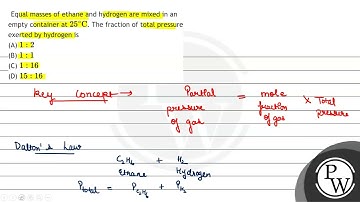 Equal masses of ethane and hydrogen are mixed in an
empty container at 25°C. The fraction of total pressure
exerted by hydrogen is
(A) 1 : 2
(B) 1 : 1
(C) 1 : 16
(D) 15 : 16
Key concept → Partial pressure of gas = mole fraction of gas × Total pressure
Dalton's Law
C₂H₆ + H₂
Ethane Hydrogen
P total = P C₂H₆ + P H₂
PW